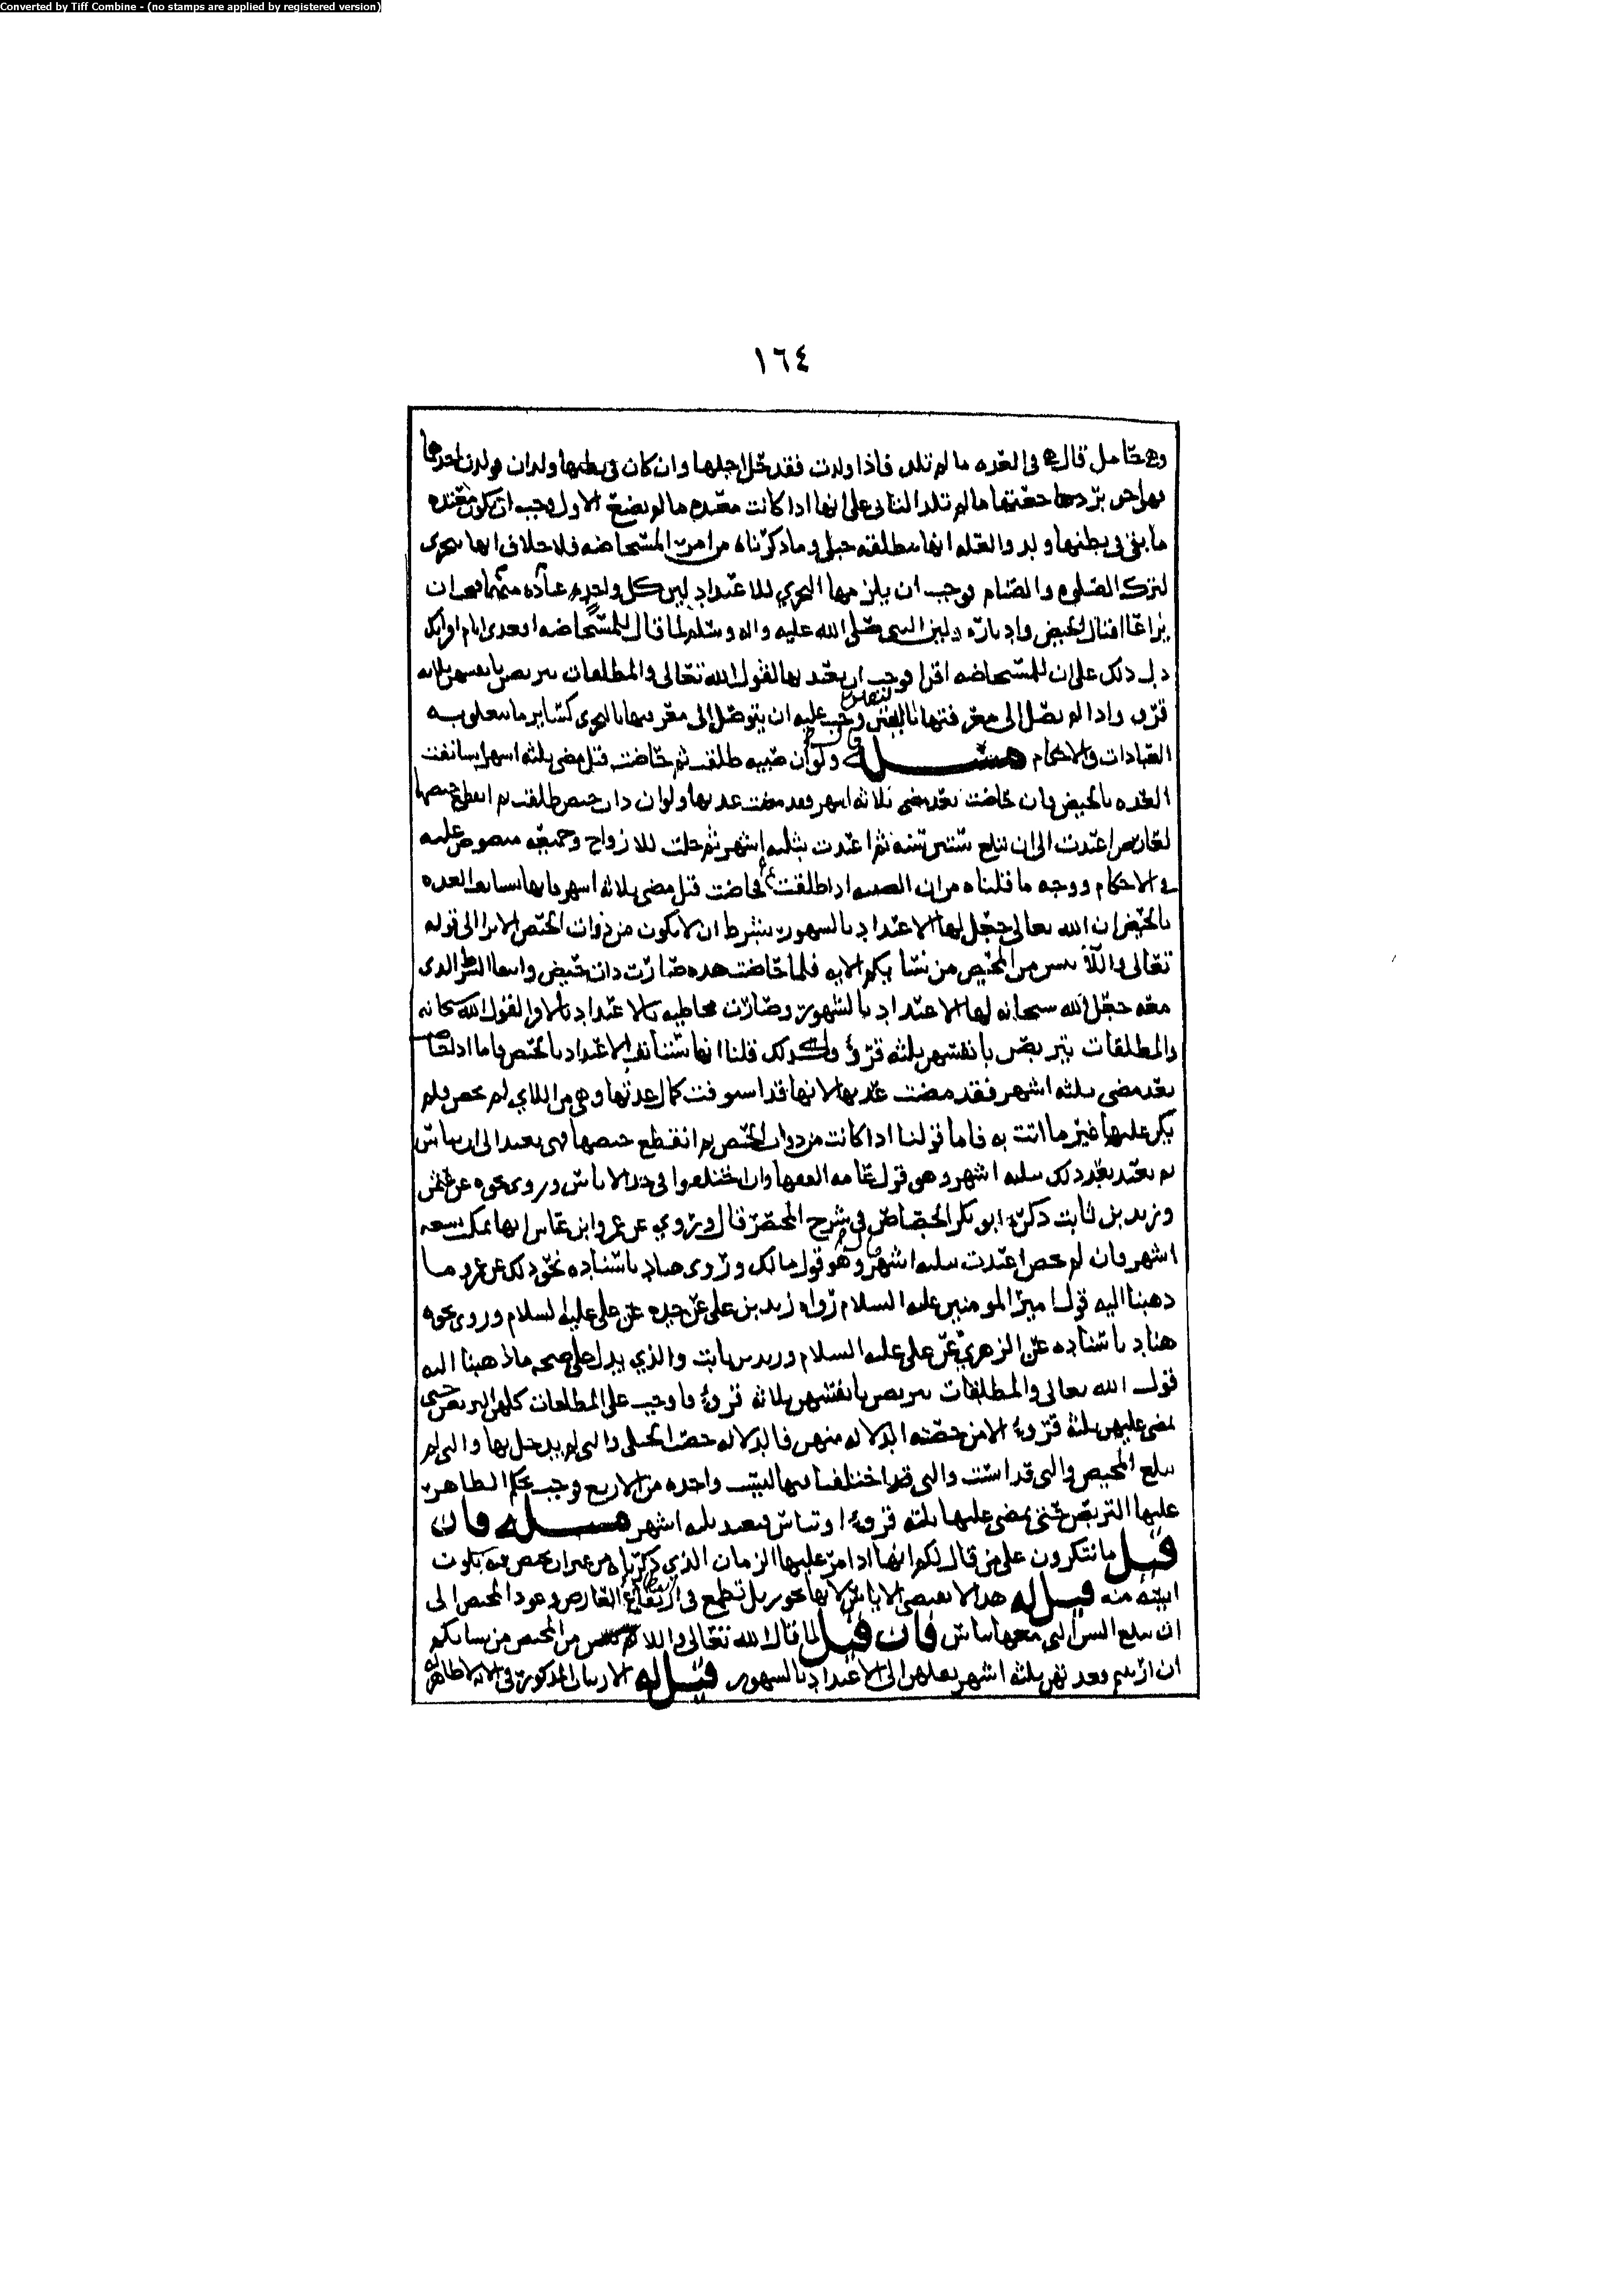 Converted by Tiff Combine - (no stamps are applied by registered version)
١٦٤
وهي حامل قال هي في العده ما لم تلد فاذا ولدت فقد حل اجلها وان كان في بطنها ولدان فولدت احدهما
فهو احق برجعتها ما لم تلد الثاني على انها اذا كانت معتده ما لم تضع الاول وجب ان تكون معتده
ما بقي في بطنها ولد والعله انها مطلقه حبلى وما ذكرناه من امر المستحاضه فلا خلاف انها تتحرى
لترك الصلوه والصيام فوجب ان يلزمها التحري للاعتداد لان كل واحده عباده
يراعا اقبال الحيض وادباره لان النبي صلى الله عليه واله وسلم لما قال للمستحاضه اقعدي ايام اقرائك
دل ذلك على ان للمستحاضه اقرا فوجب ان يعتد بها لقول الله تعالى والمطلقات يتربصن بانفسهن ثلاثه
قرؤ واذا لم يصل الى معرفتها باليقين وجب عليه ان يتوصل الى معرفتها بالتحري كسائر ما يتعلق به
العبادات والاحكام مسئله ولو ان صبيه طلقت ثم حاضت قبل مضي ثلثه اشهر استانفت
العده بالحيض وان حاضت بعد مضي ثلاثه اشهر فقد مضت عدتها ولو ان ذات حيض طلقت ثم انقطع حيضها
لعارض اعتدت الى ان تبلغ ستين سنه ثم اعتدت بثلثه اشهر ثم حلت للازواج وجميعه منصوص عليه
في الاحكام ووجه ما قلناه من ان الصبيه اذا طلقت فحاضت قبل مضي ثلاثه اشهر فانها تستانف العده
بالحيض ان الله تعالى جعل لها الاعتداد بالشهور بشرط ان لا تكون من ذوات الحيض الا ترا الى قوله
تعالى واللائي يئسن من المحيض من نسائكم الايه فلما حاضت هذه صارت ذات حيض وانتفا الشرط الذي
معه جعل الله سبحانه لها الاعتداد بالشهور وصارت مخاطبه بالاعتداد بالاقرا لقول الله سبحانه
والمطلقات يتربصن بانفسهن ثلثه قرؤ ولذلك قلنا انها تستانف الاعتداد بالحيض فاما اذا حاضت
بعد مضي ثلثه اشهر فقد مضت عدتها لانها قد استوفت كمال عدتها وهي من اللاي لم يحضن ولم
يكن عليها غير ما اتت به فاما قولنا اذا كانت من ذوات الحيض ثم انقطع حيضها فهي تعتد الى الاياس
ثم تعتد بعد ذلك بثلثه اشهر وهو قول عامه الفقها وان اختلفوا في حد الاياس وروي نحوه عن عثمن
وزيد بن ثابت ذكره ابو بكر الجصاص في شرح المختصر قال وروي عن عمر وابن عباس انها تمكث تسعه
اشهر فان لم تحض اعتدت بثلثه اشهر وهو قول مالك وروى هناد باسناده نحو ذلك عن عمر وما
ذهبنا اليه قول امير المومنين عليه السلام رواه زيد بن علي عن جده عن علي عليه السلام وروى نحوه
هناد باسناده عن الزهري عن علي عليه السلام وزيد بن ثابت والذي يدل على صحه ما ذهبنا اليه
قول الله تعالى والمطلقات يتربصن بانفسهن ثلاثه قرؤ فاوجب على المطلقات كلهن التربص حتى
تمضي عليهن ثلثه قرؤ الا من خصته الدلاله منهن فالدلاله خصت الحبلى والتي لم يدخل بها والتي لم
تبلغ المحيض والتي قد ايست والتي قد اختلفنا فيها ليست واحده من الاربع فوجب بحكم الظاهر
عليها التربص حتى يمضي عليها ثلثه قرؤ او تياس فتعتد ثلثه اشهر مسئله فان
قيل ما تنكرون على من قال لكم انها اذا مر عليها الزمان الذي ذكرناه من غير ان تحيض فيه تكون
ايسه منه قيل له هذا لا يقتضي الاياس لانها تجوز بل تطمع في ارتفاع العارض وعود الحيض الى
ان تبلغ السن التي معها تياس فان قيل لما قال الله تعالى واللائي يئسن من المحيض من نسائكم
ان ارتبتم فعدتهن ثلثه اشهر نقلهن الى الاعتداد بالشهور قيل له الارتياب المذكور في الايه